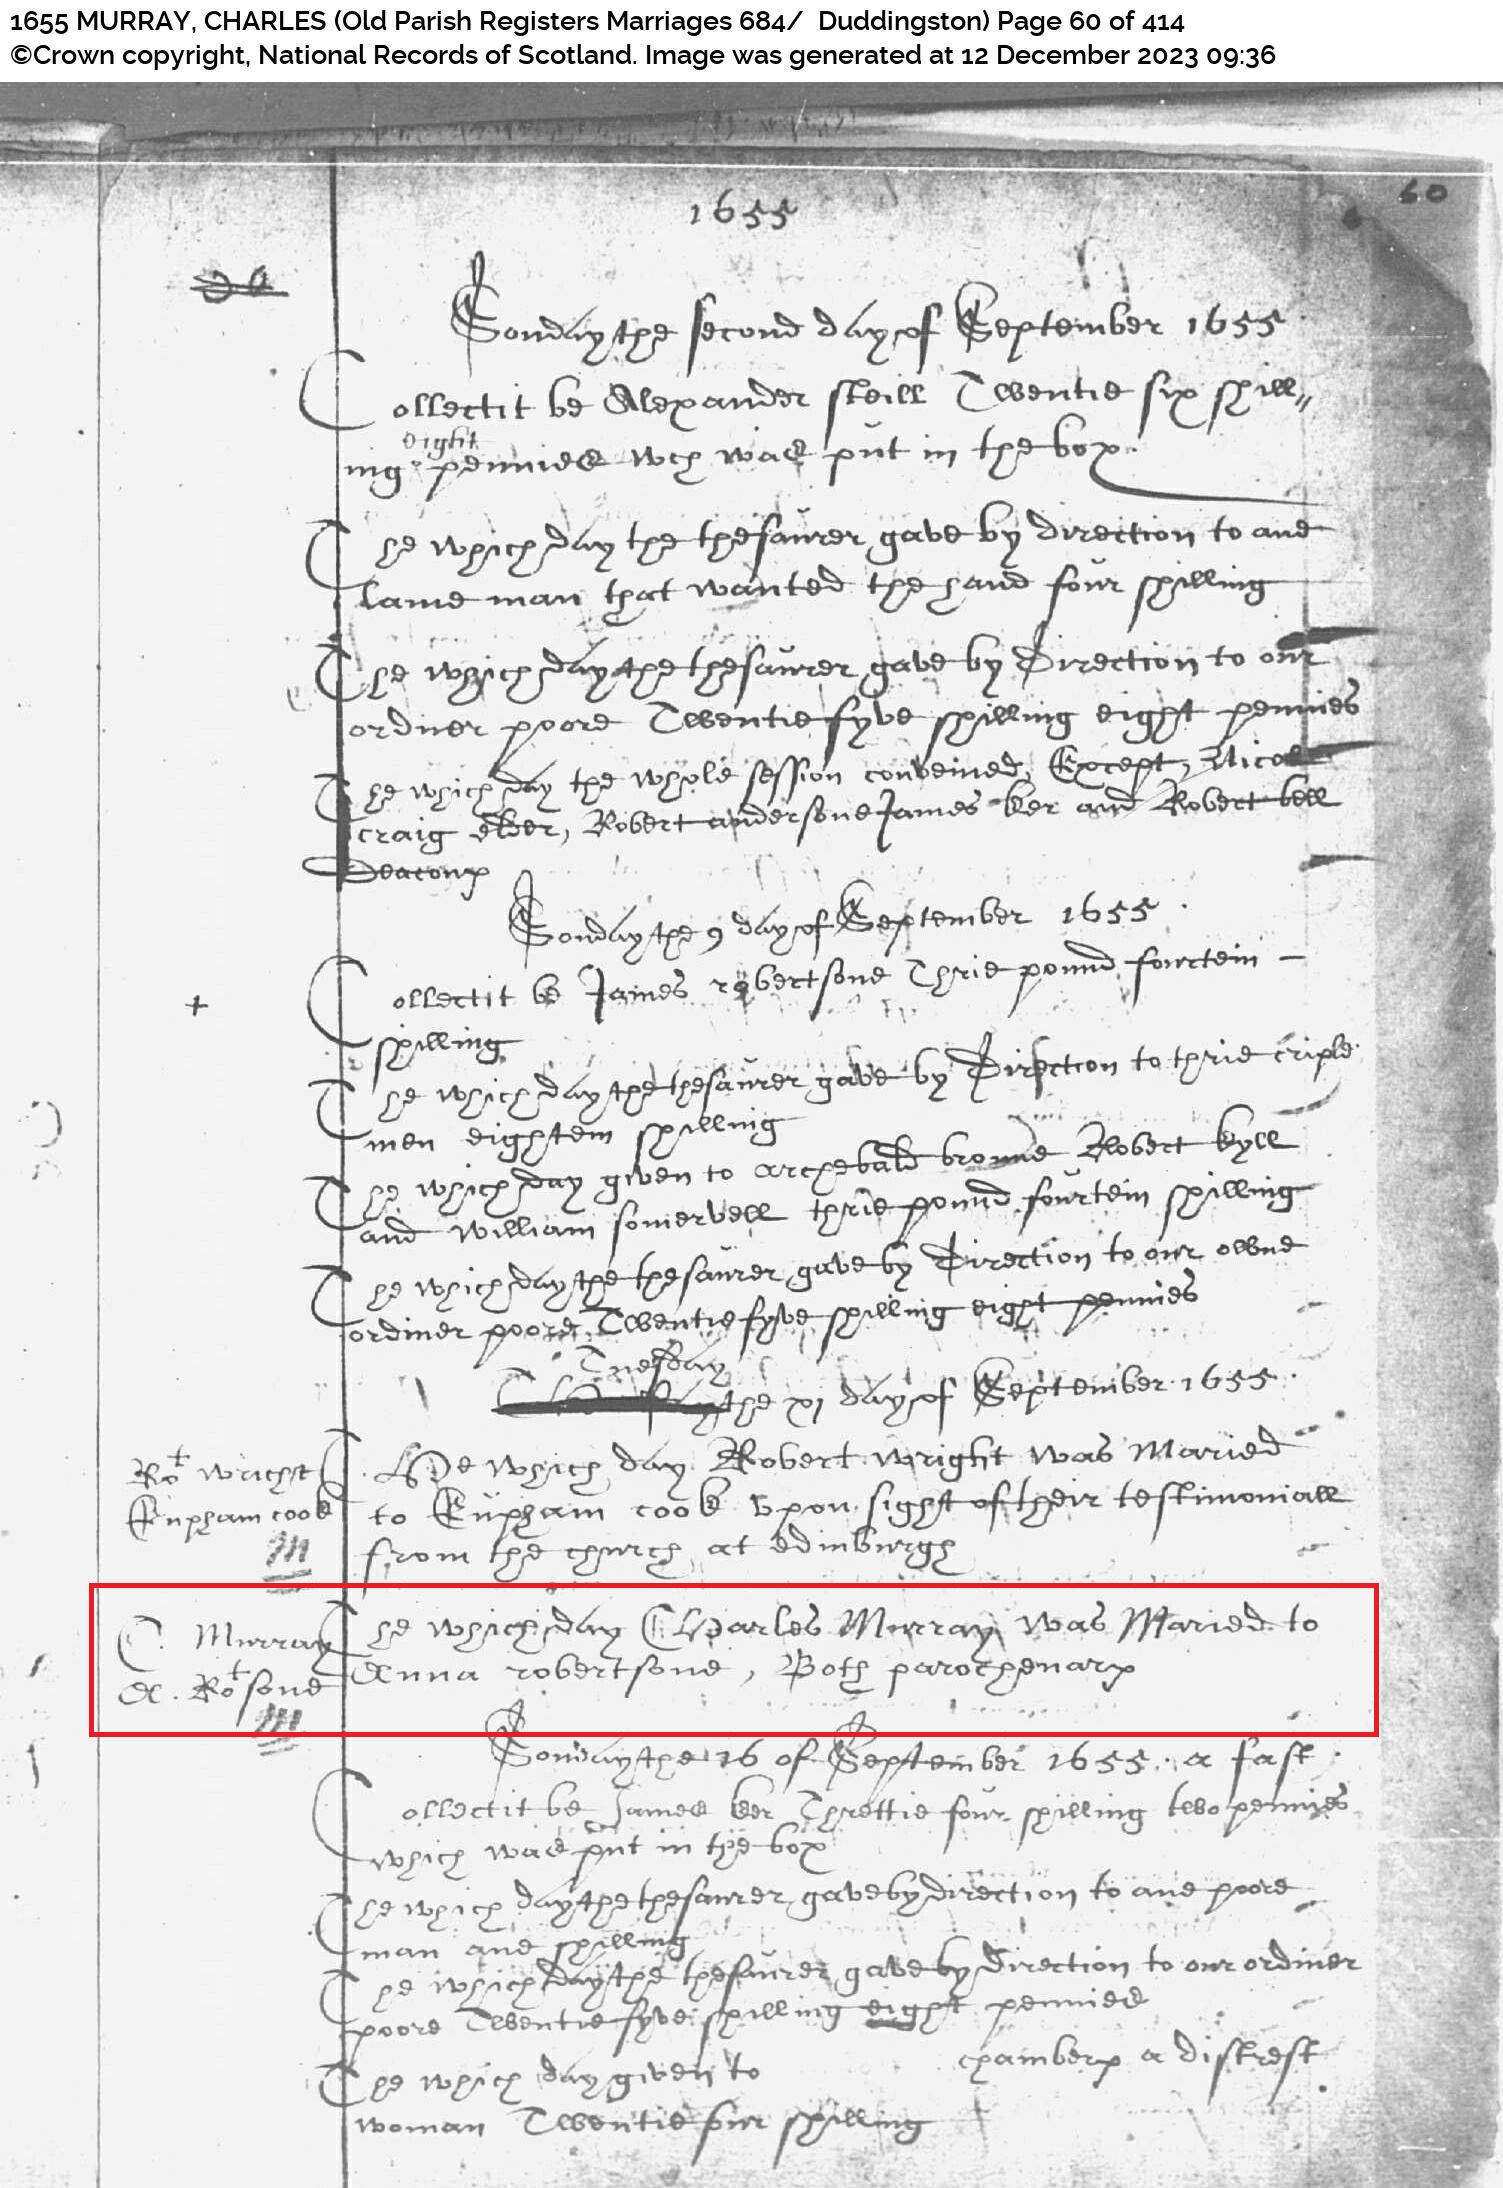 1655 MURRAY, CHARLES (Old Parish Registers Marriages 684/ Duddingston) Page 60 of 414
©Crown copyright, National Records of Scotland. Image was generated at 12 December 2023 09:36
1655
60
Sonday the second day of September 1655
Collectit be Alexander steill Twentie six shill„
eight
ing pennies wch was put in the box
The which day the thesaurer gave by direction to ane
lame man that wanted the hand four shilling
The which day the thesaurer gave by Direction to our
ordner poore Twentie fyve shilling eight pennies
The which day the whole session conveined, Except, Nicol
craig elder, Robert andersone James ker and Robert bell
Deacons
Sonday the 9 day of September 1655
+
Collectit be James robertsone Thrie pound fourtein
shilling
The which day the thesaurer gave by Direction to thrie criple
men eightein shilling
The which day given to archebald broune Robert kyll
and william somervell thrie pound fourtein shilling
The which day the thesaurer gave by Direction to our owne
ordiner poore Twentie fyve shilling eight pennies
Tuesday
the xj day of September 1655
Rot wricht
Eupham cook
M
The which day Robert wright was Maried
to Eupham cook vpon sight of their testimoniall
from the church at Edinburgh
C. Murray
A. Rotsone
M
The which day Charles Murray was Maried to
Anna robertsone, Both parochenars
Sonday the 16 of September 1655. a fast
Collectit be James ker Threttie four shilling two pennies
which was put in the box
The which day the thesaurer gave by direction to ane poore
man ane shilling
The which day the thesaurer gave by direction to our ordiner
poore Twentie fyve shilling eight pennies
The which day given to chambers a distrest
woman Twentie four shilling